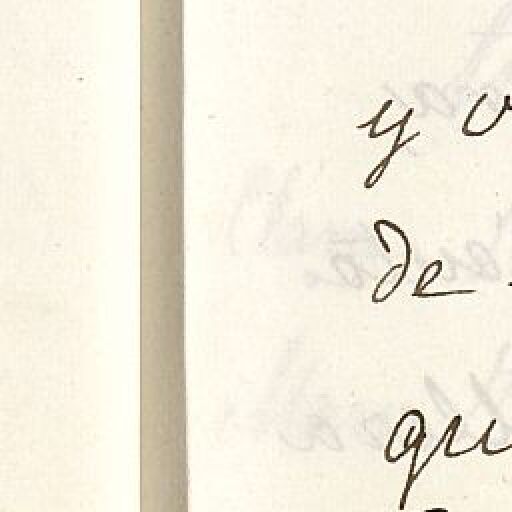 y v
de
qu